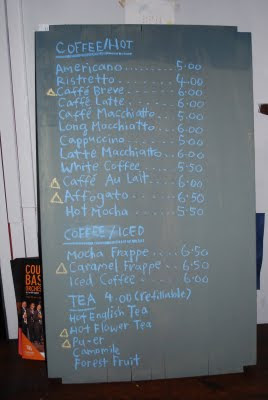 COFFEE/HOT
Americano........5.00
Ristretto.......4.00
Caffé Breve......6.00
Caffé Latte.....6.00
Caffé Macchiatto...5.00
Long Macchiatto...6.00
Cappuccino......5.00
Latte Macchiatto...6.00
White Coffee.....5.50
Caffé Au Lait....6.00
Affogato.......6.50
Hot Mocha......5.50
COFFEE/ICED
Mocha Frappe...6.50
Caramel frappe...6.50
Iced Coffee....6.00
TEA 4.00 (refillable)
Hot English Tea
Hot Flower Tea
Pu-er
Camomile
Forest Fruit
COU
BAS